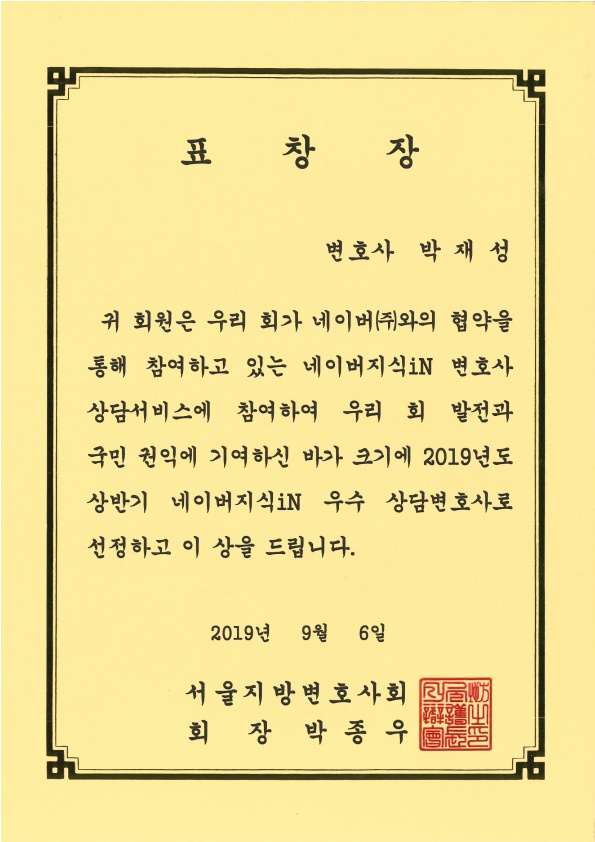 표 창 장
변호사 박 재 성
귀 회원은 우리 회가 네이버㈜와의 협약을
통해 참여하고 있는 네이버지식iN 변호사
상담서비스에 참여하여 우리 회 발전과
국민 권익에 기여하신 바가 크기에 2019년도
상반기 네이버지식iN 우수 상담변호사로
선정하고 이 상을 드립니다.
2019년 9월 6일
서울지방변호사회
회 장 박 종 우